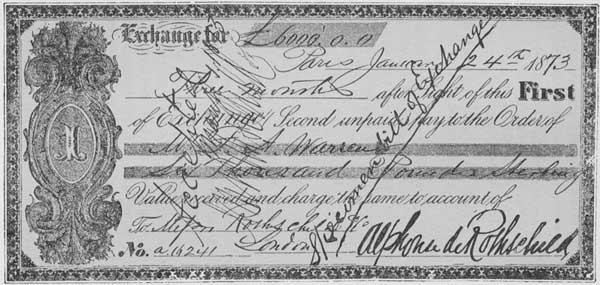 Exchange for £6000.0.0
Paris January 24th 1873
Three months after sight of this First
of Exchange (Second unpaid) pay to the Order of
Mr F. A. Warren
Six Thousand Pounds Sterling
Value received and charge the same to account of
To Messrs Rothschild
London
Alphonse de Rothschild
No.
1
Specimen Bill of Exchange